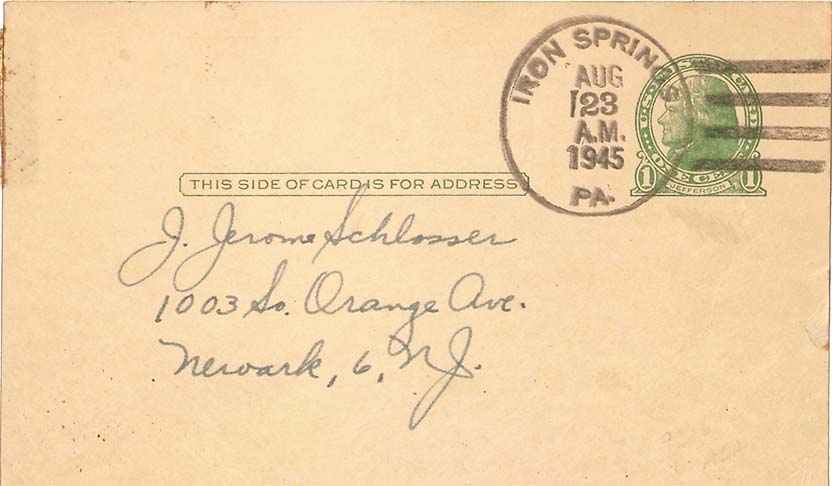 IRON SPRINGS
AUG
23
A.M.
1945
PA.
U.S. POSTAL CARD
ONE CENT
1 JEFFERSON 1
THIS SIDE OF CARD IS FOR ADDRESS
J. Jerome Schlosser
1003 So. Orange Ave.
Newark, 6, N.J.